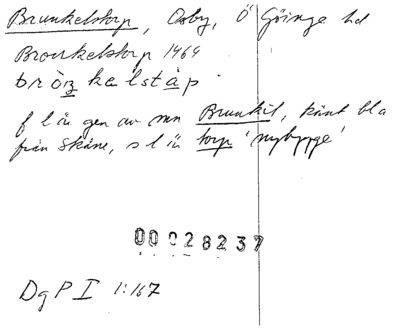 Brunkelstorp, Osby, Ö Göinge hd
Bronkelstorp 1464
bròŋkəlstàp
f l är gen av mn Brunkil, känt bl a
från Skåne, s l är torp 'nybygge'
00028237
DgP I 1:167